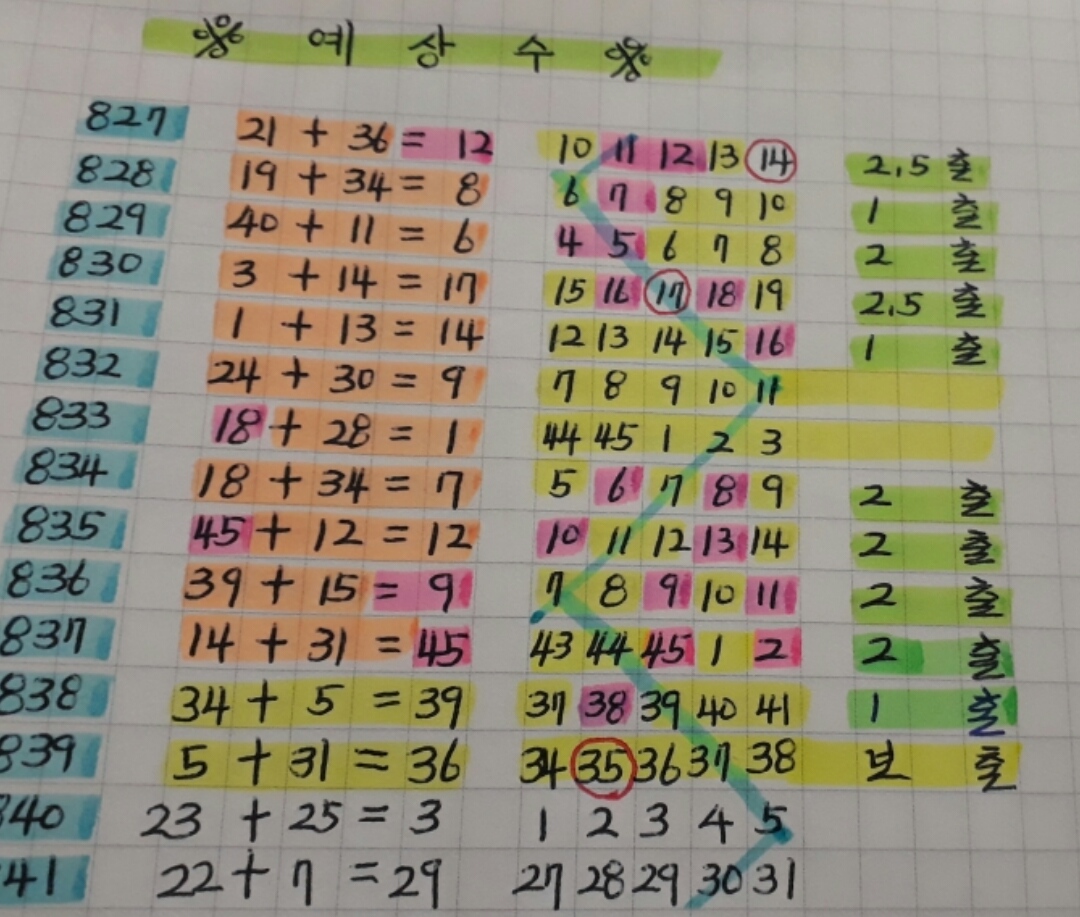 ※ 예 상 수 ※
827 21 + 36 = 12 10 11 12 13 14 2.5 출
828 19 + 34 = 8 6 7 8 9 10 1 출
829 40 + 11 = 6 4 5 6 7 8 2 출
830 3 + 14 = 17 15 16 17 18 19 2.5 출
831 1 + 13 = 14 12 13 14 15 16 1 출
832 24 + 30 = 9 7 8 9 10 11
833 18 + 28 = 1 44 45 1 2 3
834 18 + 34 = 7 5 6 7 8 9 2 출
835 45 + 12 = 12 10 11 12 13 14 2 출
836 39 + 15 = 9 7 8 9 10 11 2 출
837 14 + 31 = 45 43 44 45 1 2 2 출
838 34 + 5 = 39 37 38 39 40 41 1 출
839 5 + 31 = 36 34 35 36 37 38 보 출
840 23 + 25 = 3 1 2 3 4 5
41 22 + 7 = 29 27 28 29 30 31